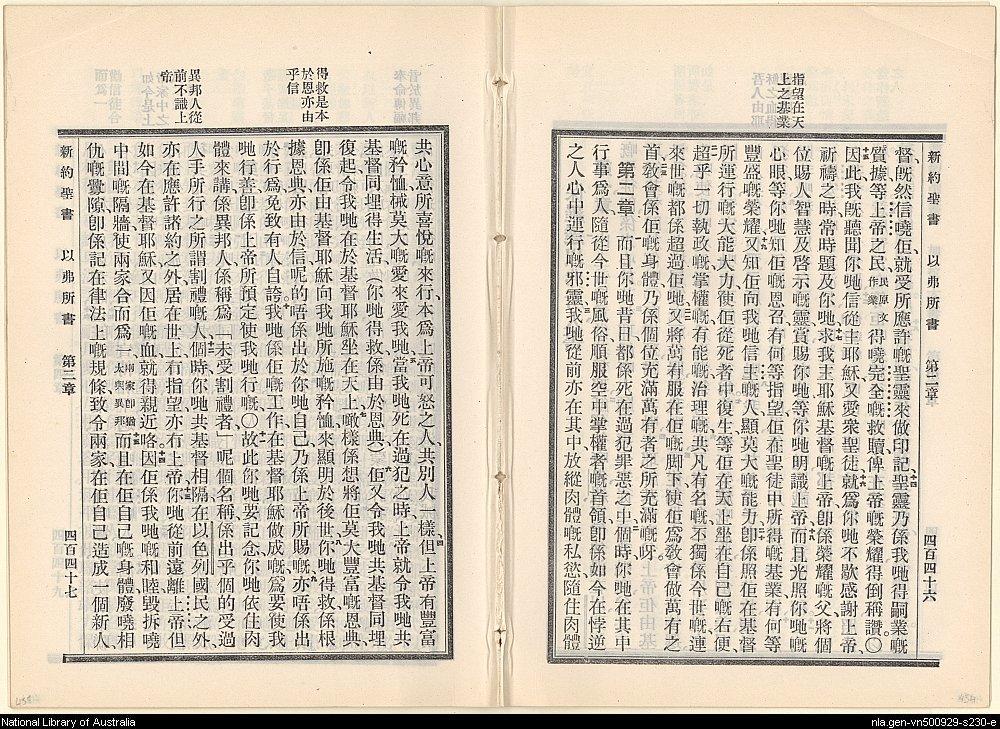 新約聖書 以弗所書 第二章 四百四十六
指望在天
上之基業
督、既然信嘵佢、就受所應許嘅聖靈來做印記、聖靈乃係我哋得嗣業嘅
質據、等上帝之民、得嘵完全嘅救贖、俾上帝嘅榮耀得倒稱讚。〇
因此我旣聽聞你哋信從主耶穌、又愛衆聖徒、就爲你哋不歇感謝上帝、
祈禱之時、常時題及你哋、求我主耶穌基督嘅上帝、卽係榮耀嘅父、將個
位賜人智慧及啓示嘅靈賞賜你哋、等你哋明識上帝、而且光照你哋嘅
心眼、等你哋知佢嘅恩召有何等指望、佢在聖徒中所得嘅基業、有何等
豐盛嘅榮耀、又知佢向我哋信主嘅人、顯莫大嘅能力、卽係照佢在基督
所運行嘅大能大力、使佢從死者中復生、等佢在天上坐在自己嘅右便、
超乎一切執政嘅、掌權嘅、有能嘅、治理嘅、共凡有名嘅、不獨係今世嘅、連
來世嘅都係超過佢哋、又將萬有服在佢嘅脚下、使佢爲敎會做萬有之
首、敎會係佢嘅身體、乃係個位充滿萬有者之所充滿嘅呀。
第二章 而且你哋昔日都係死在過犯罪惡之中、個時你哋在其中
行事爲人、隨從今世嘅風俗、順服空中掌權者嘅首領、卽係如今在悖逆
之人心中運行嘅邪靈、我哋從前亦在其中、放縱肉體嘅私慾、隨住肉體
得救是本
於恩亦由
乎信
異邦人從
前不識上
帝
共心意所喜悅嘅來行、本爲上帝可怒之人、共別人一樣、但上帝有豐富
嘅矜恤、因莫大嘅愛來愛我哋、當我哋死在過犯之時、上帝就令我哋共
基督同埋得生活、（你哋得救係由於恩典）佢又令我哋共基督同埋
復起、令我哋在於基督耶穌坐在天上、噉樣係想將佢莫大豐富嘅恩典、
卽係佢由基督耶穌向我哋所施嘅矜恤、來顯明於後世、你哋得救係根
據恩典、亦由於信、呢的唔係出於你哋自己、乃係上帝所賜嘅、亦唔係出
於行爲、免致有人自誇、我哋係佢嘅工作、在基督耶穌做成嘅、爲要使我
哋行善、卽係上帝所預定使我哋行嘅。〇故此你哋要記念、你哋依住肉
體來講係異邦人、係稱爲「未受割禮者」、呢個名稱係出乎個的受過
人手所行之所謂割禮嘅人、個時你哋共基督相隔、在以色列國民之外、
亦在應許諸約之外、居在世上冇指望、亦冇上帝、你哋從前遠離上帝、但
如今在基督耶穌、又因佢嘅血、就得親近咯、因佢係我哋嘅和睦、毀拆嘵
中間嘅隔牆、使兩家合而爲一、兩家卽猶太與異邦 而且在佢自己嘅身體、廢嘵相
仇嘅釁隙、卽係記在律法上嘅規條、致令兩家在佢自己造成一個新人、
新約聖書 以弗所書 第二章 四百四十七
National Library of Australia
nla.gen-vn500929-s230-e